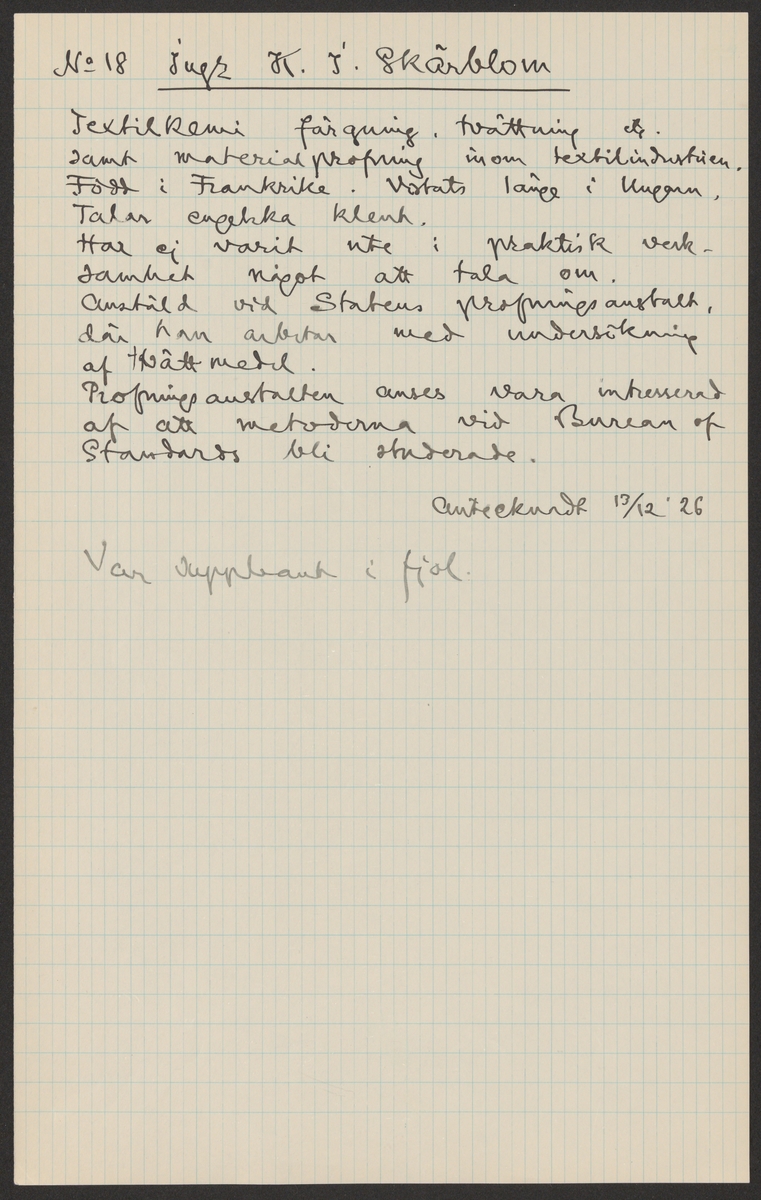 No 18 Ingr K. I. Skärblom
Textilkemi färgning, tvättning etc.
samt materialprofning inom textilindustrien.
Född i Frankrike. Vistats länge i Ungern.
Talar engelska klent.
Har ej varit ute i praktisk verk-
samhet något att tala om.
Anställd vid Statens profningsanstalt,
där han arbetar med undersökning
af tvättmedel.
Profningsanstalten anses vara intresserad
af att metoderna vid Bureau of
Standards bli studerade.
Antecknadt 13/12 '26
Var suppleant i fjol.